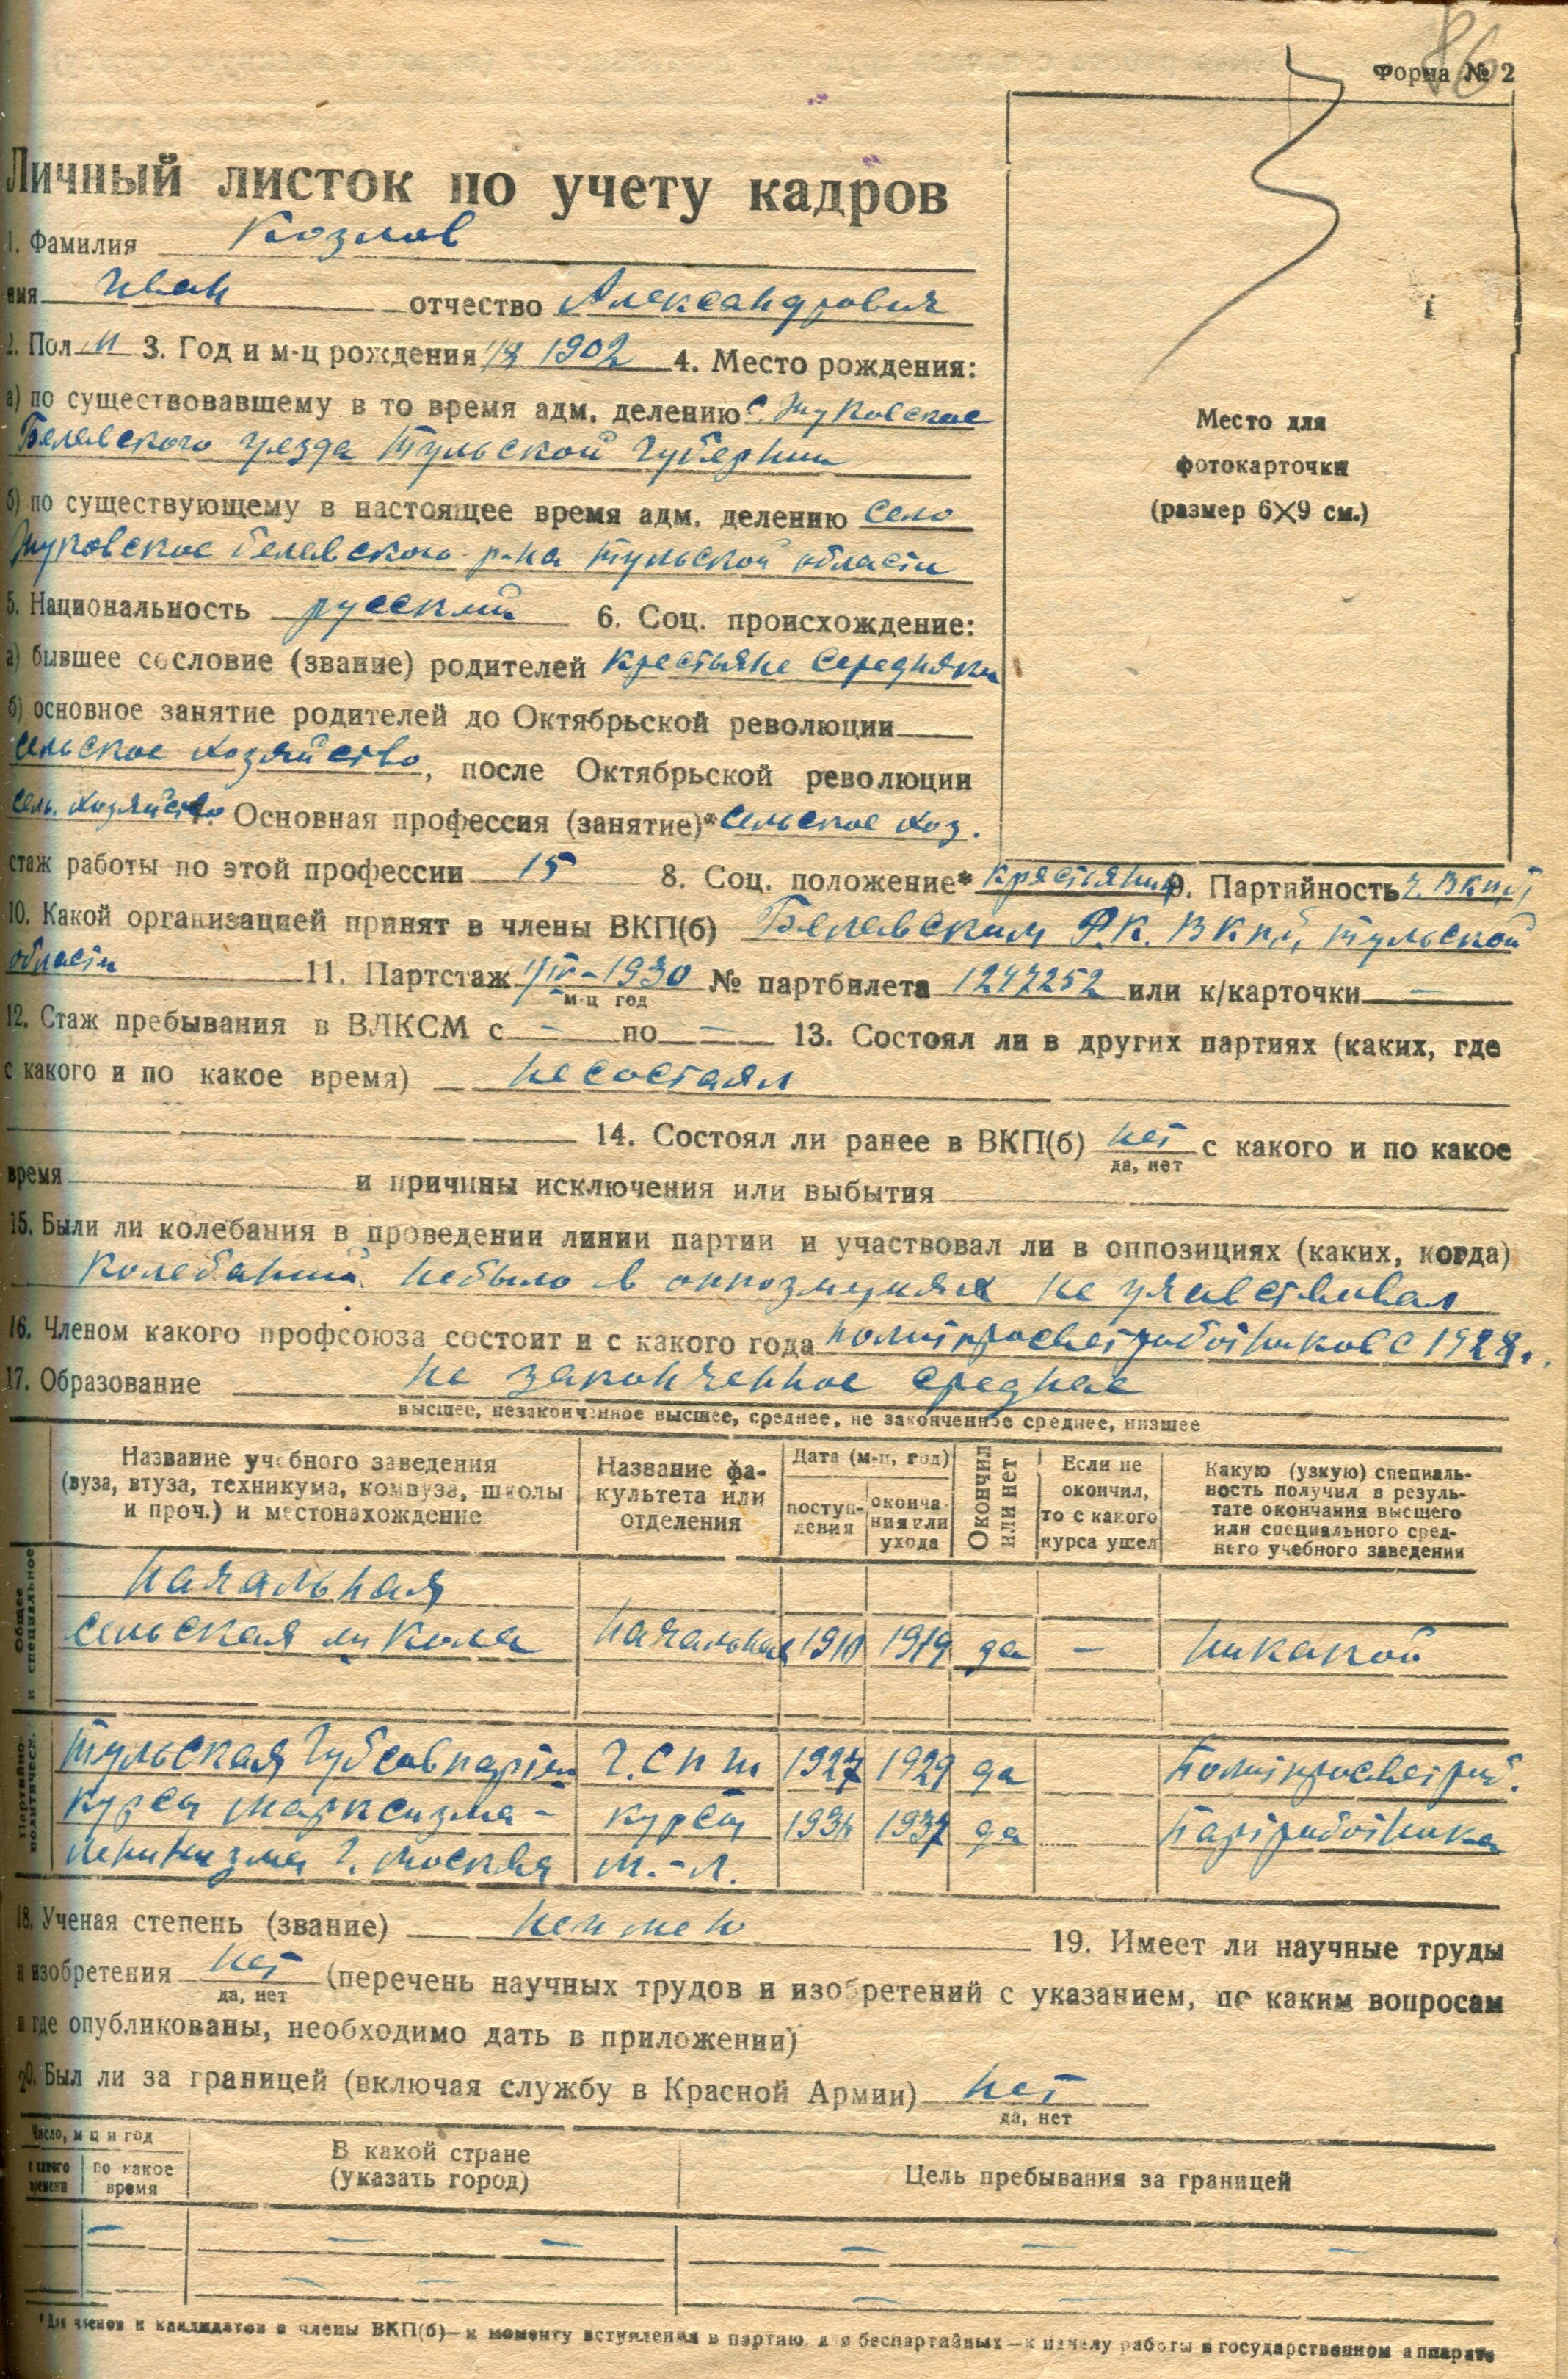 86
Форма № 2
Личный листок по учету кадров
1. Фамилия Козлов
имя Иван отчество Александрович
2. Пол М 3. Год и м-ц рождения 1902 4. Место рождения:
а) по существовавшему в то время адм. делению с. Жуковское
Белевского уезда Тульской Губернии
б) по существующему в настоящее время адм. делению село
Жуковское Белевского р-на Тульской области
5. Национальность русский 6. Соц. происхождение:
а) бывшее сословие (звание) родителей крестьяне середняки
б) основное занятие родителей до Октябрьской революции
сельское хозяйство, после Октябрьской революции
сель. хозяйство 7. Основная профессия (занятие)* сельское хоз.
стаж работы по этой профессии 15 8. Соц. положение* крестьянин 9. Партийность ч. ВКП(б)
10. Какой организацией принят в члены ВКП(б) Белевским Р.К. ВКП(б) Тульской
области 11. Партстаж 1/IV-1930 № партбилета 1247252 или к/карточки —
м-ц год
12. Стаж пребывания в ВЛКСМ с — по — 13. Состоял ли в других партиях (каких, где
с какого и по какое время) не состаял
14. Состоял ли ранее в ВКП(б) нет с какого и по какое
да, нет
время и причины исключения или выбытия
15. Были ли колебания в проведении линии партии и участвовал ли в оппозициях (каких, когда)
Колебаний небыло в оппозициях не учавствовал
16. Членом какого профсоюза состоит и с какого года политпросветработников с 1928.
17. Образование не законченное среднее
высшее, незаконченное высшее, среднее, не законченное среднее, низшее
Название учебного заведения
(вуза, втуза, техникума, комвуза, школы
и проч.) и местонахождение
Название факультета или
отделения
Дата (м-ц, год)
поступления
окончания или
ухода
Окончил
или нет
Если не
окончил,
то с какого
курса ушел
Какую (узкую) специальность получил в результате окончания высшего
или специального среднего учебного заведения
Общее
и специальное
начальная
сельская школа начальная 1910 1919 да — никакой
Партийно-
политическ.
Тульская Губсовпартш Г.С.П.Ш 1927 1929 да политпросветраб.
курсы марксизма- курсы 1937 да партработника
ленинизма г. Москва М.-Л.
18. Ученая степень (звание) неимею 19. Имеет ли научные труды
и изобретения нет (перечень научных трудов и изобретений с указанием, по каким вопросам
да, нет
и где опубликованы, необходимо дать в приложении)
20. Был ли за границей (включая службу в Красной Армии) нет
да, нет
Число, м-ц и год
с какого
времени
по какое
время
В какой стране
(указать город)
Цель пребывания за границей
— — — — — —
— — — — —
*Для членов и кандидатов в члены ВКП(б)—к моменту вступления в партию, для беспартийных—к началу работы в государственном аппарате
Место для
фотокарточки
(размер 6×9 см.)